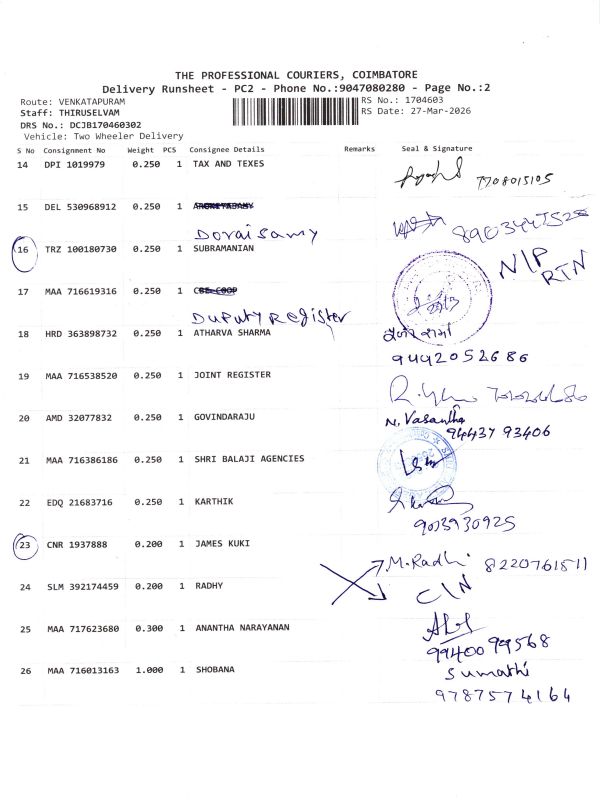 THE PROFESSIONAL COURIERS, COIMBATORE
Delivery Runsheet - PC2 - Phone No.:9047080280 - Page No.:2
Route: VENKATAPURAM
RS No.: 1704603
Staff: THIRUSELVAM
RS Date: 27-Mar-2026
DRS No.: DCJB170460302
Vehicle: Two Wheeler Delivery
S No Consignment No Weight PCS Consignee Details Remarks Seal & Signature
14 DPI 1019979 0.250 1 TAX AND TEXES
7708015105
15 DEL 530968912 0.250 1
Doraisamy
16 TRZ 100180730 0.250 1 SUBRAMANIAN
N/P
RTN
17 MAA 716619316 0.250 1
Duputy Register
18 HRD 363898732 0.250 1 ATHARVA SHARMA
9442052686
19 MAA 716538520 0.250 1 JOINT REGISTER
20 AMD 32077832 0.250 1 GOVINDARAJU N. Vasantha
94437 93406
21 MAA 716386186 0.250 1 SHRI BALAJI AGENCIES
22 EDQ 21683716 0.250 1 KARTHIK
9013930925
23 CNR 1937888 0.200 1 JAMES KUKI
M. Radhi 8220761511
24 SLM 392174459 0.200 1 RADHY C/N
25 MAA 717623680 0.300 1 ANANTHA NARAYANAN
99400 99568
26 MAA 716013163 1.000 1 SHOBANA Sumathi
9787574164